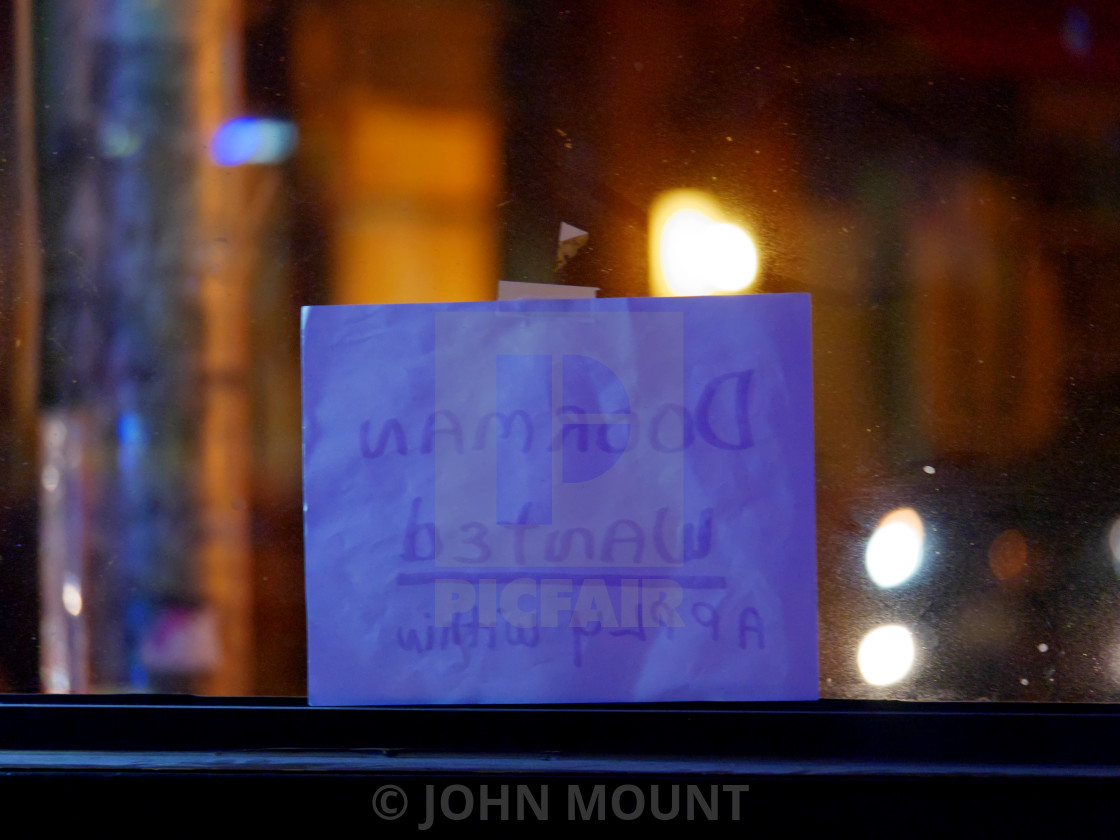 DOORMAN
WANTEd
APPLy within
PICFAIR
© JOHN MOUNT